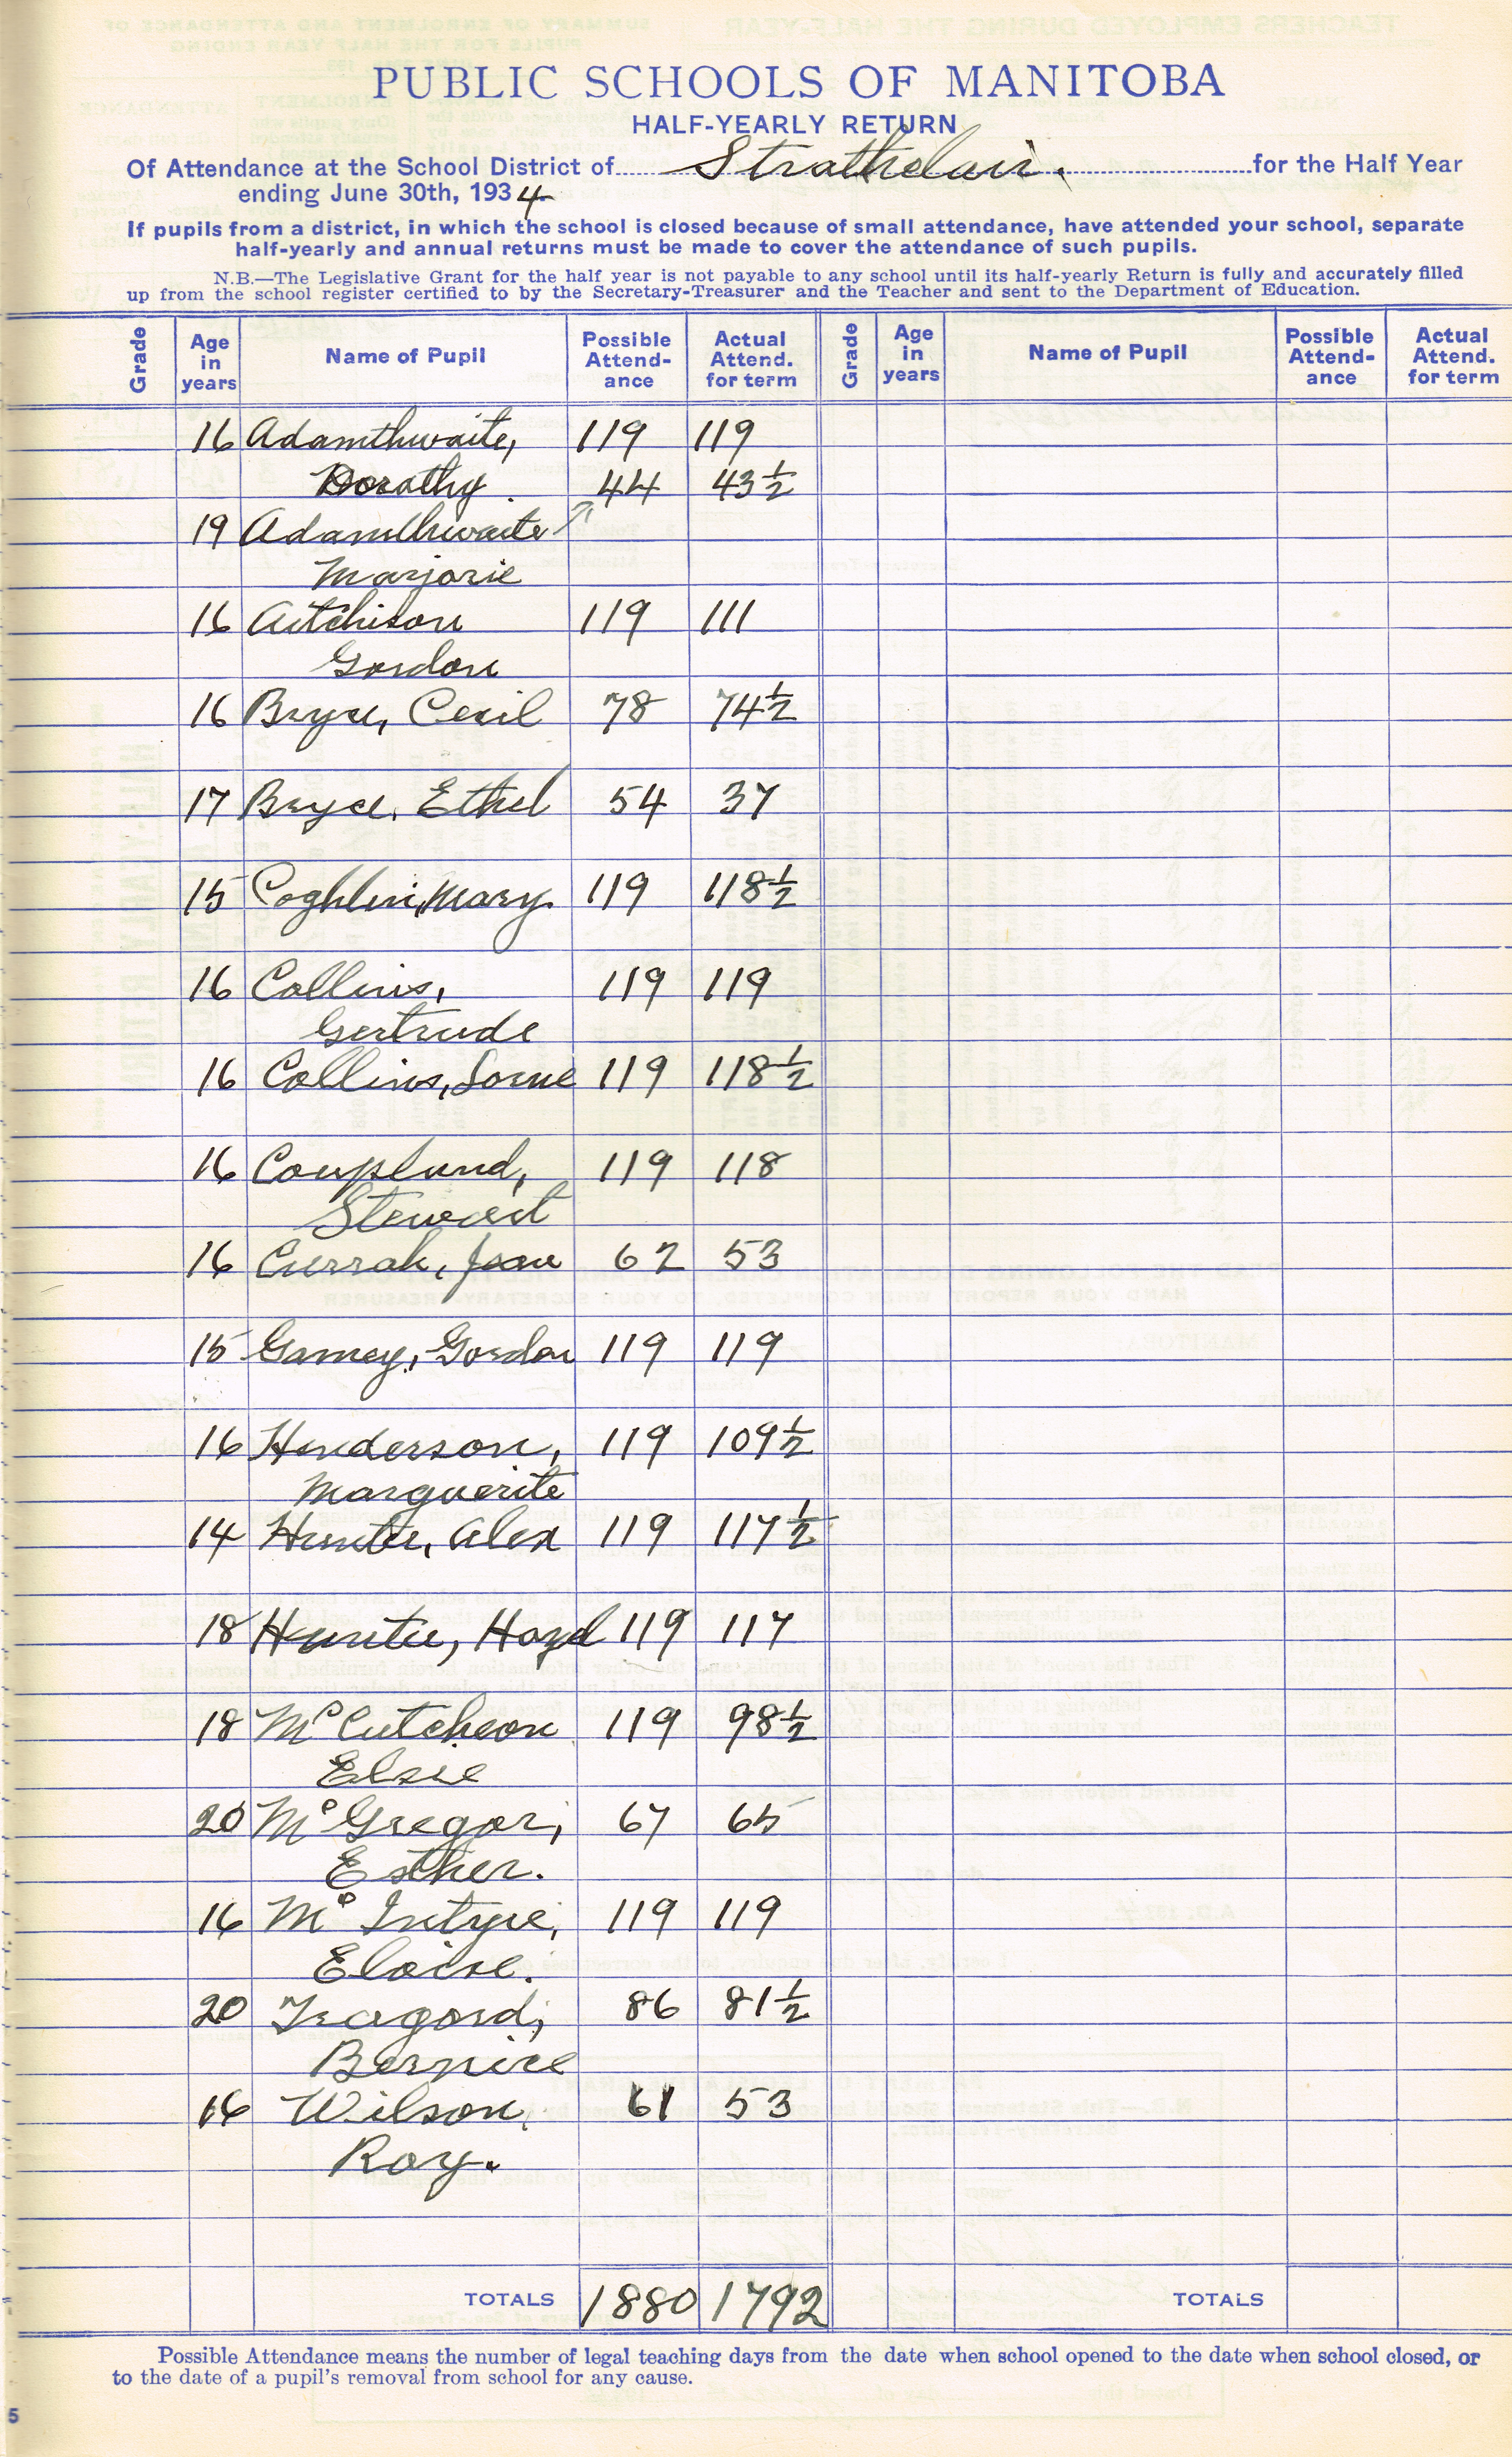 PUBLIC SCHOOLS OF MANITOBA
HALF-YEARLY RETURN
Of Attendance at the School District of Strathclair. for the Half Year
ending June 30th, 1934
If pupils from a district, in which the school is closed because of small attendance, have attended your school, separate
half-yearly and annual returns must be made to cover the attendance of such pupils.
N.B.—The Legislative Grant for the half year is not payable to any school until its half-yearly Return is fully and accurately filled
up from the school register certified to by the Secretary-Treasurer and the Teacher and sent to the Department of Education.
Grade Age in years Name of Pupil Possible Attend-ance Actual Attend. for term Grade Age in years Name of Pupil Possible Attend-ance Actual Attend. for term
16 Adamthwaite, 119 119
Dorothy. 44 43½
19 Adamthwaite
Marjorie
16 Aitchison 119 111
Gordon
16 Bryce, Cecil 78 74½
17 Bryce, Ethel 54 37
15 Coghlin, Mary 119 118½
16 Collins, 119 119
Gertrude
16 Collins, Lorne 119 118½
16 Coupland, 119 118
Stewart
16 Currah, Jean 62 53
15 Gamey, Gordon 119 119
16 Henderson, 119 109½
Marguerite
14 Hunter, Alex 119 117½
18 Hunter, Hazel 119 117
18 McCutcheon 119 98½
Elsie
20 McGregor, 67 65
Esther.
16 McIntyre, 119 119
Eloise.
20 86 81½
Bernice
16 Wilson, 61 53
Roy.
TOTALS 1880 1792 TOTALS
Possible Attendance means the number of legal teaching days from the date when school opened to the date when school closed, or
to the date of a pupil's removal from school for any cause.
5